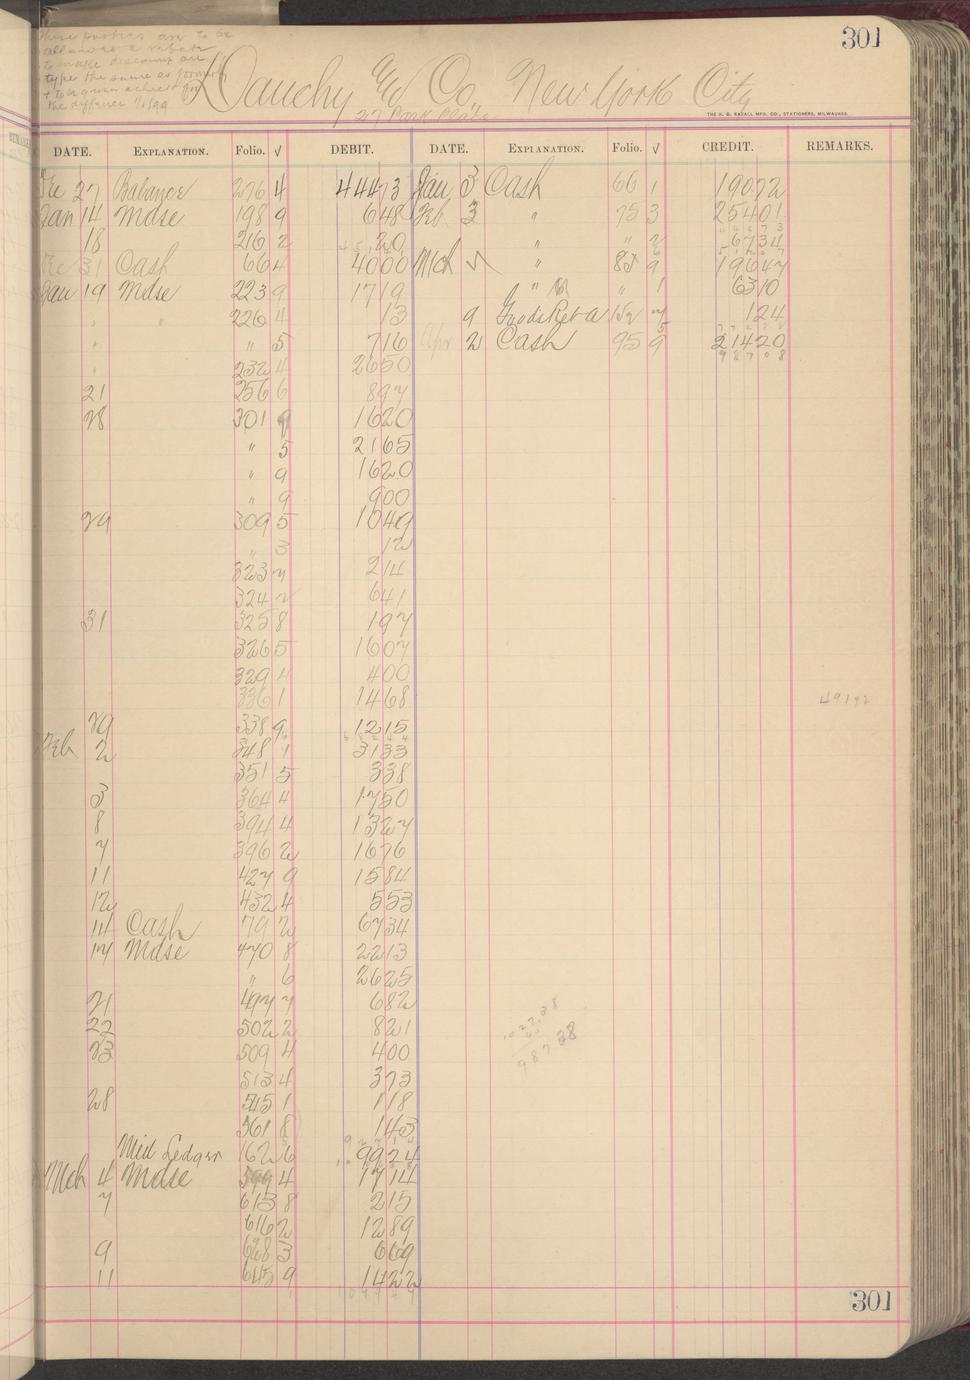 301
These parties are to be
allowed a rebate
to make discount on
type the same as
to be given
the diffrence 1/1/99
Dauchy & Co., New York City
27 Park Place
THE H. G. RAZALL MFG. CO., STATIONERS, MILWAUKEE.
DATE. EXPLANATION. Folio. √ DEBIT. DATE. EXPLANATION. Folio. √ CREDIT. REMARKS.
27 Balance 276 4 44473 Jan 3 Cash 66 1 19072
Jan 14 Mdse 198 9 648 Feb 3 " 75 3 25401
18 216 2 20 " " 2 6734
31 Cash 66 4 4000 Mch " 85 9 19647
Jan 19 Mdse 223 9 1719 " " 1 6310
" " 226 4 13 9 152 7 124
" " 5 716 Apr 2 Cash 95 9 21420
" 232 4 2650 98708
21 256 6 897
28 301 9 1620
" 5 2165
" 9 1620
" 9 900
29 309 5 1049
" 3 12
323 7 214
324 2 641
31 325 8 197
326 5 1607
329 4 400
336 1 1468 49192
29 338 9 1215
Feb 2 348 1 3133
351 5 338
3 364 4 1750
8 394 4 1327
7 396 2 1676
11 427 9 1584
12 432 4 553
14 Cash 79 2 6734
17 Mdse 470 8 2213
" 6 2625
21 497 7 682
22 502 2 821
23 509 4 400 98738
513 4 373
28 545 1 118
561 8 143
Mid Ledger 162 6 9924
Mch 4 Mdse 599 4 1714
7 613 8 215
616 2 1289
9 628 3 669
11 645 9 1422
301